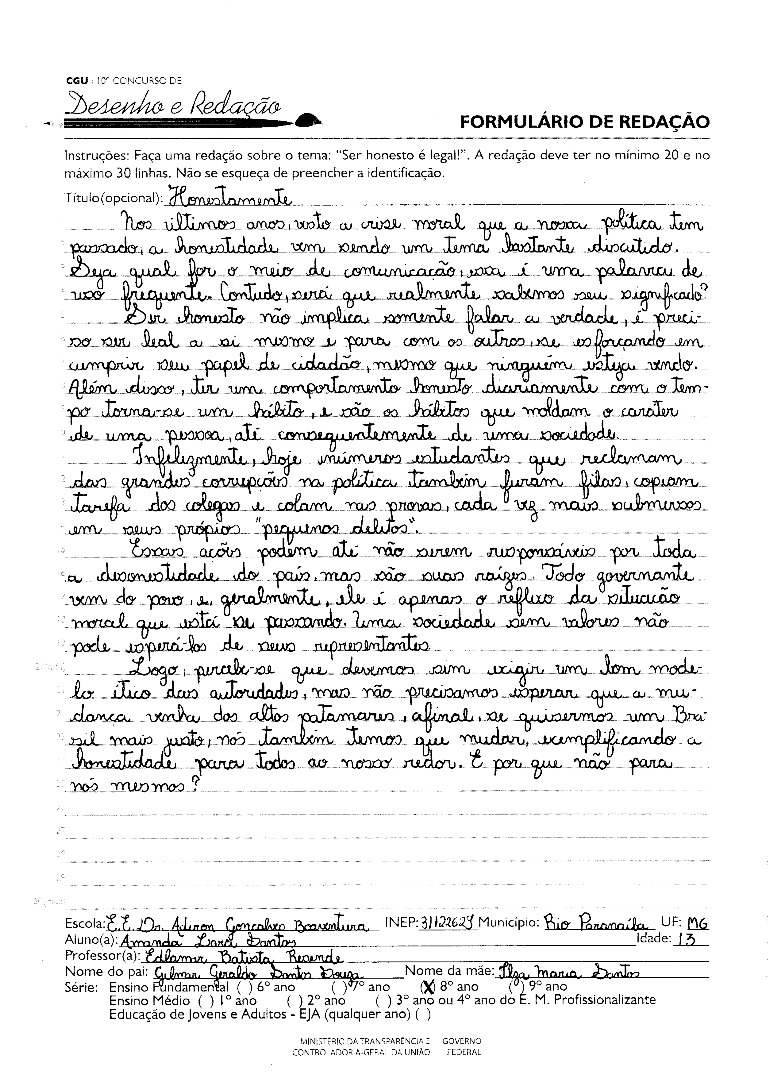 CGU : 10º CONCURSO DE
Desenho e Redação
FORMULÁRIO DE REDAÇÃO
Instruções: Faça uma redação sobre o tema: "Ser honesto é legal!". A redação deve ter no mínimo 20 e no
máximo 30 linhas. Não se esqueça de preencher a identificação.
Título(opcional): Honestamente
Nos últimos anos, visto a crise moral que a nossa política tem
passado, a honestidade vem sendo um tema bastante discutido.
Seja qual for o meio de comunicação, essa é uma palavra de
uso frequente. Contudo, será que realmente sabemos seu significado?
Ser honesto não implica somente falar a verdade, é preci-
so ser leal a si mesmo e para com os outros, se esforçando em
cumprir seu papel de cidadão, mesmo que ninguém esteja vendo.
Além disso, ter um comportamento honesto diariamente com o tem-
po torna-se um hábito, e são os hábitos que moldam o caráter
de uma pessoa, até consequentemente de uma sociedade.
Infelizmente, hoje inúmeros estudantes que reclamam
das grandes corrupções na política também furam filas, copiam
tarefa dos colegas e colam nas provas, cada vez mais submersos
em seus própios "pequenos delitos".
Essas ações podem até não serem responsáveis por toda
a desonestidade do país, mas são suas raízes. Todo governante
vem do povo e, geralmente, ele é apenas o reflexo da situação
moral que está se passando. Uma sociedade sem valores não
pode esperá-los de seus representantes.
Logo, percebe-se que devemos sim exigir um bom mode-
lo ético das autoridades, mas não precisamos esperar que a mu-
dança venha dos altos patamares, afinal, se quisermos um Bra-
sil mais justo, nós também temos que mudar, exemplificando a
honestidade para todos ao nosso redor. E por que não para
nós mesmos?
Escola: E.E. Dr. Adiron Gonçalves Boaventura INEP: 31122629 Município: Rio Paranaíba UF: MG
Aluno(a): Amanda Santos Idade: 13
Professor(a): Edlamar Batista Resende
Nome do pai: Gilmar Geraldo Santos Souza Nome da mãe: Ilza Maria Santos
Série: Ensino Fundamental ( ) 6º ano ( ) 7º ano (X) 8º ano ( ) 9º ano
Ensino Médio ( ) 1º ano ( ) 2º ano ( ) 3º ano ou 4º ano do E. M. Profissionalizante
Educação de Jovens e Adultos - EJA (qualquer ano) ( )
MINISTÉRIO DA TRANSPARÊNCIA E GOVERNO
CONTROLADORIA-GERAL DA UNIÃO FEDERAL